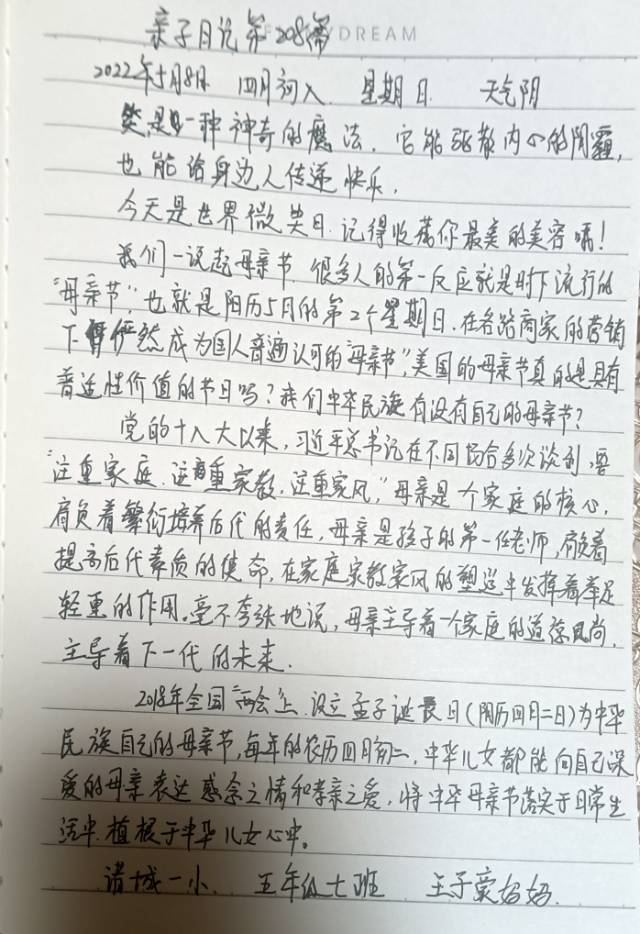 亲子日记第208篇
DREAM
2022年5月8日 四月初八 星期日 天气阴
笑是一种神奇的魔法,它能驱散内心的阴霾,
也能给身边人传递快乐.
今天是世界微笑日,记得收藏你最美的美容哦!
我们一说起母亲节,很多人的第一反应就是时下流行的
“母亲节”,也就是阳历5月的第2个星期日,在各路商家的营销
下俨然成为国人普遍认可的“母亲节”,美国的母亲节真的是具有
普适性价值的节日吗?我们中华民族有没有自己的母亲节?
党的十八大以来,习近平总书记在不同场合多次谈到,要
“注重家庭、注重家教、注重家风,”母亲是一个家庭的核心,
肩负着繁衍培养后代的责任,母亲是孩子的第一任老师,肩负着
提高后代素质的使命,在家庭家教家风的塑造中发挥着举足
轻重的作用。毫不夸张地说,母亲主导着一个家庭的道德风尚,
主导着下一代的未来.
2018年全国“两会”上,设立孟子诞辰日(阴历四月二日)为中华
民族自己的母亲节,每年的农历四月初二,中华儿女都能向自己深
爱的母亲表达感念之情和孝亲之爱,将中华母亲节落实于日常生
活中,植根于中华儿女心中。
诸城一小 五年级七班 王子 妈妈